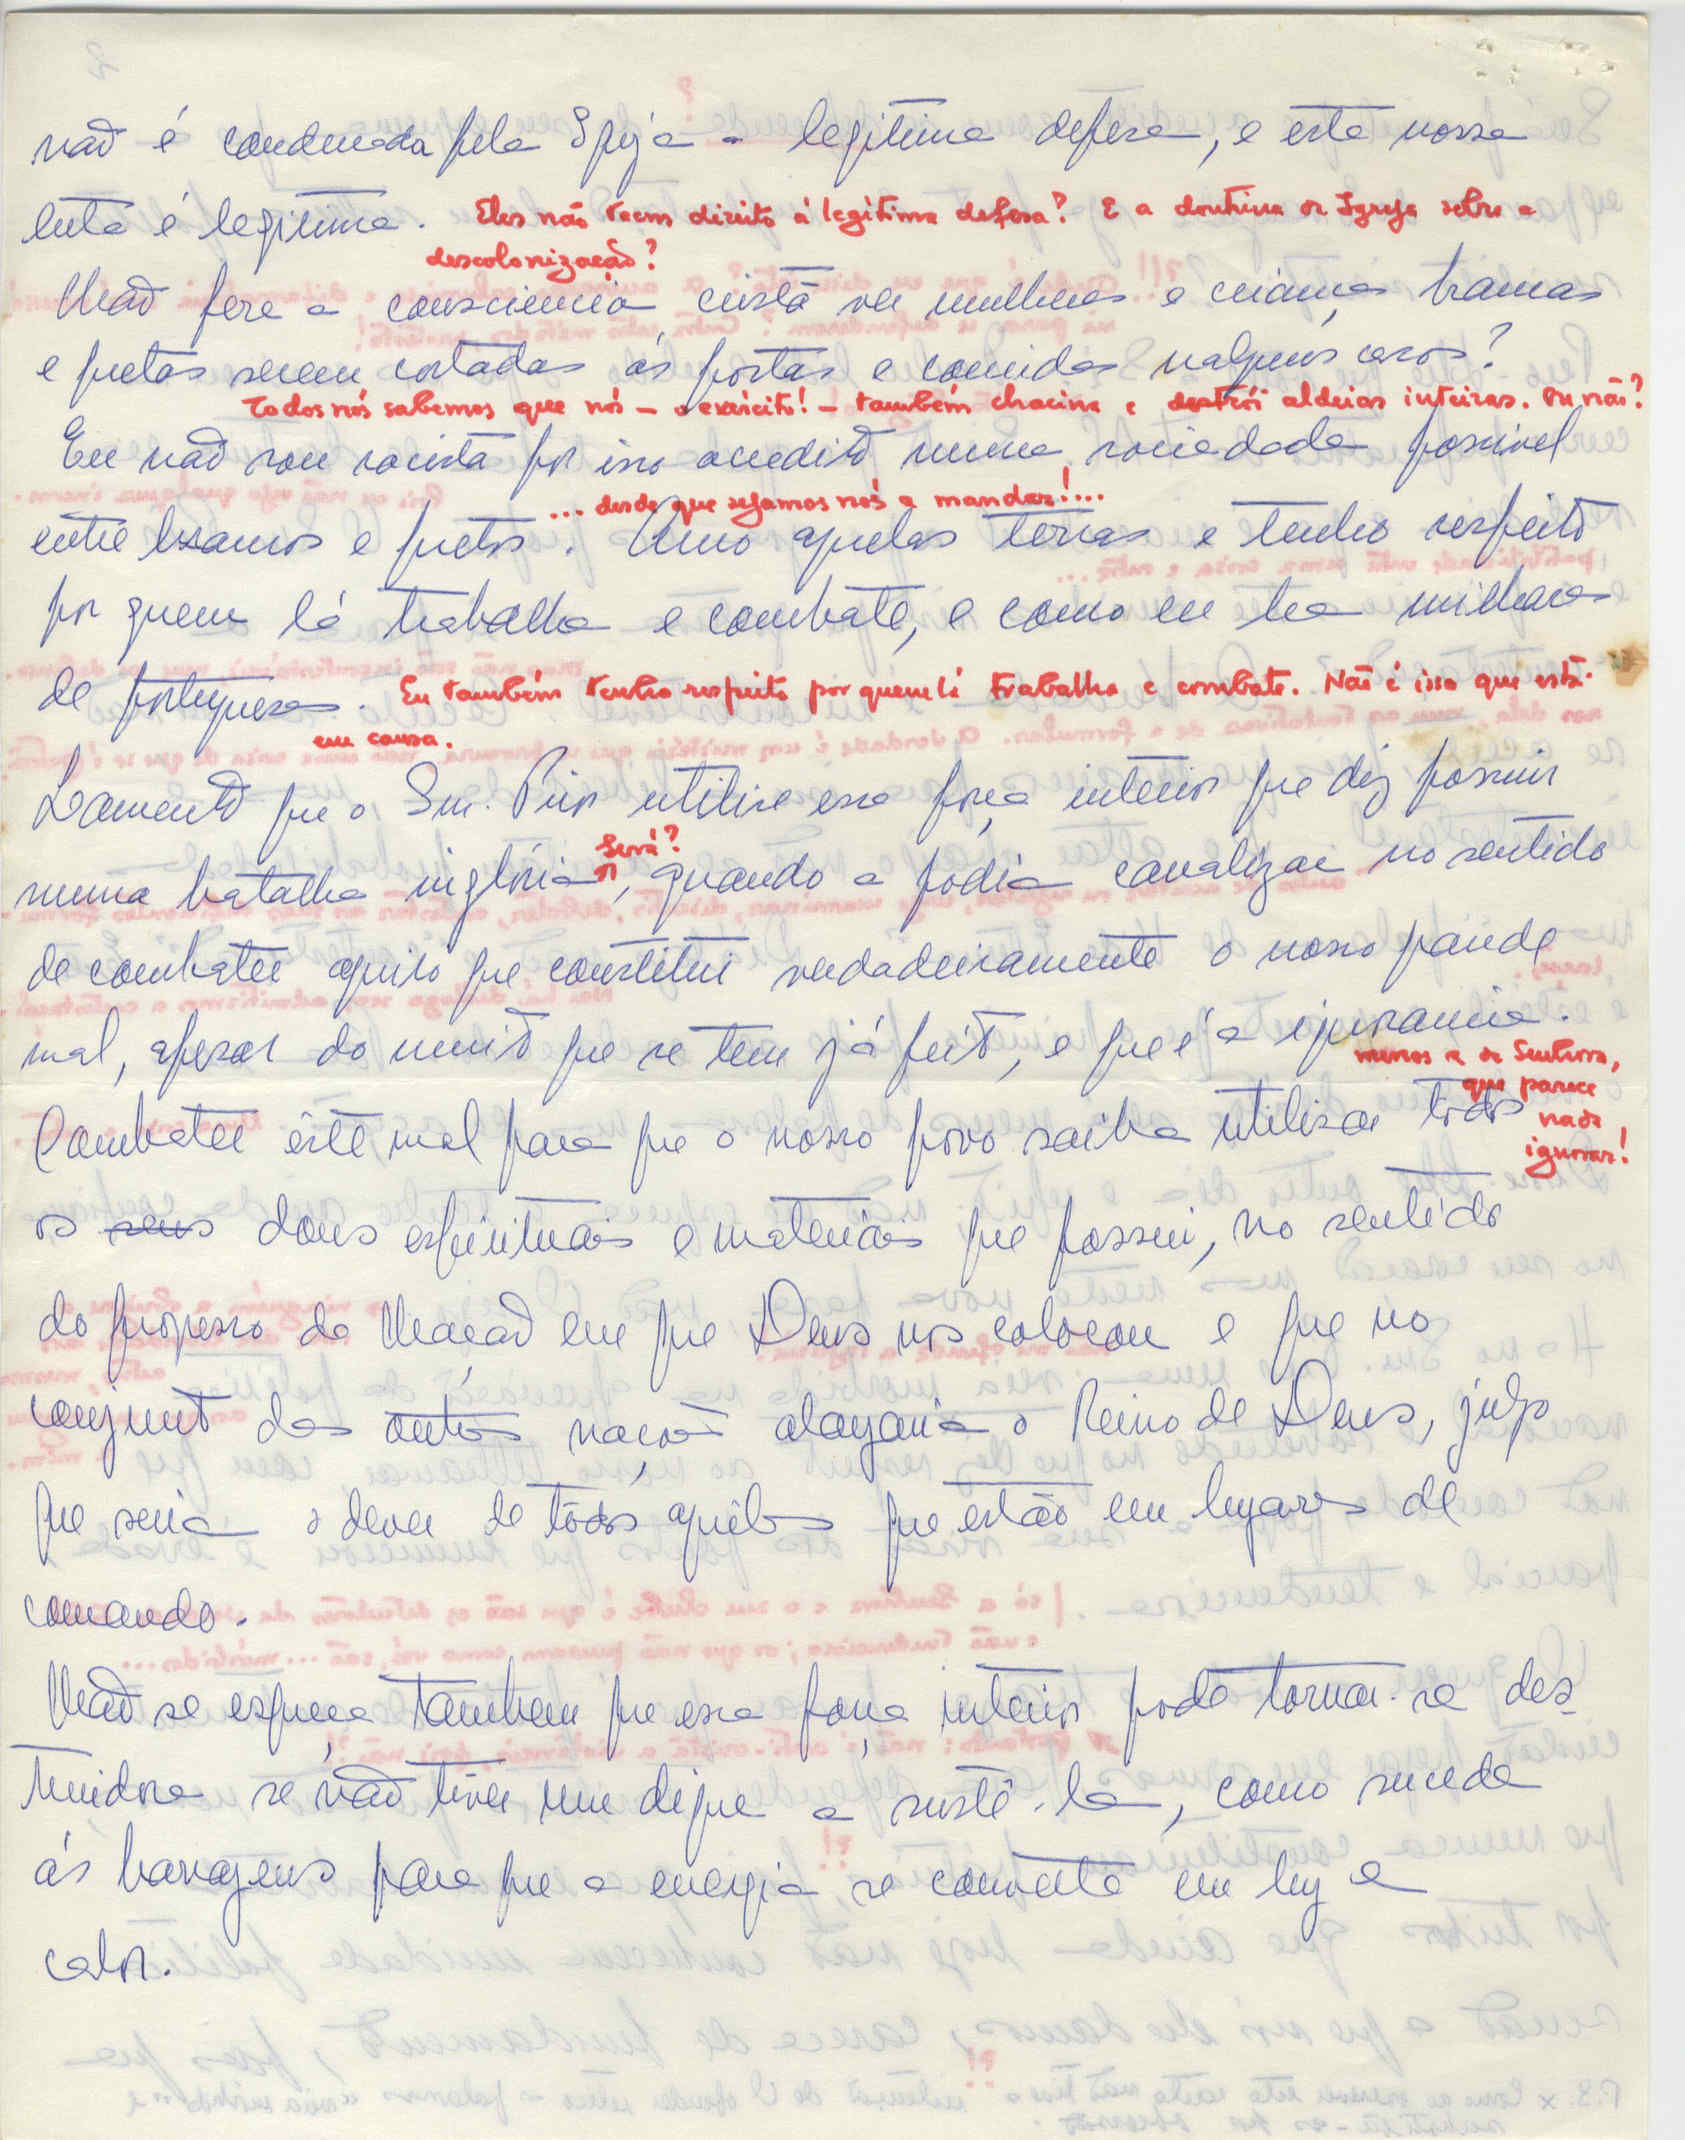 não é condenada pela Igreja a legitima defesa, e esta nossa
luta é legitima. Eles não teem direito à legítima defesa? E a doutrina da Igreja sobre a
descolonização?
Não fere a consciencia cristã ver mulheres e crianças brancas
e pretas serem cortadas ás postas e comidas nalguns casos?
Todos nós sabemos que nós – o exército! – também chacina e destrói aldeias inteiras. Ou não?
Eu não sou racista por isso acredito numa sociedade possivel
... desde que sejamos nós a mandar!...
entre brancos e pretos. Amo aquelas terras e tenho respeito
por quem lá trabalha e combate, e como eu ha milhares
de portugueses. Eu também tenho respeito por quem lá trabalha e combate. Não é isso que está
em causa.
Lamento que o Snr. Prior utilize essa força interior que diz possuir
Será?
numa batalha inglória, quando a podia canalizar no sentido
de combater aquilo que constitui verdadeiramente o nosso grande
mal, apesar do muito que se tem já feito, e que é a ignorancia.
menos a da Senhora,
que parece
nada
ignorar!
Combater êste mal para que o nosso povo saiba utilizar todos
os seus dons espirituais e materiais que possui, no sentido
do progresso da Nação em que Deus nos colocou e que no
conjunto das outras nações alargaria o Reino de Deus, julgo
que seria o dever de todos aquêles que estão em lugares de
comando.
Não se esqueça tambem que essa força interior pode tornar-se des-
truidora se não tiver um dique a sustê-la, como sucede
ás barragens para que a energia se converta em luz e
calor.